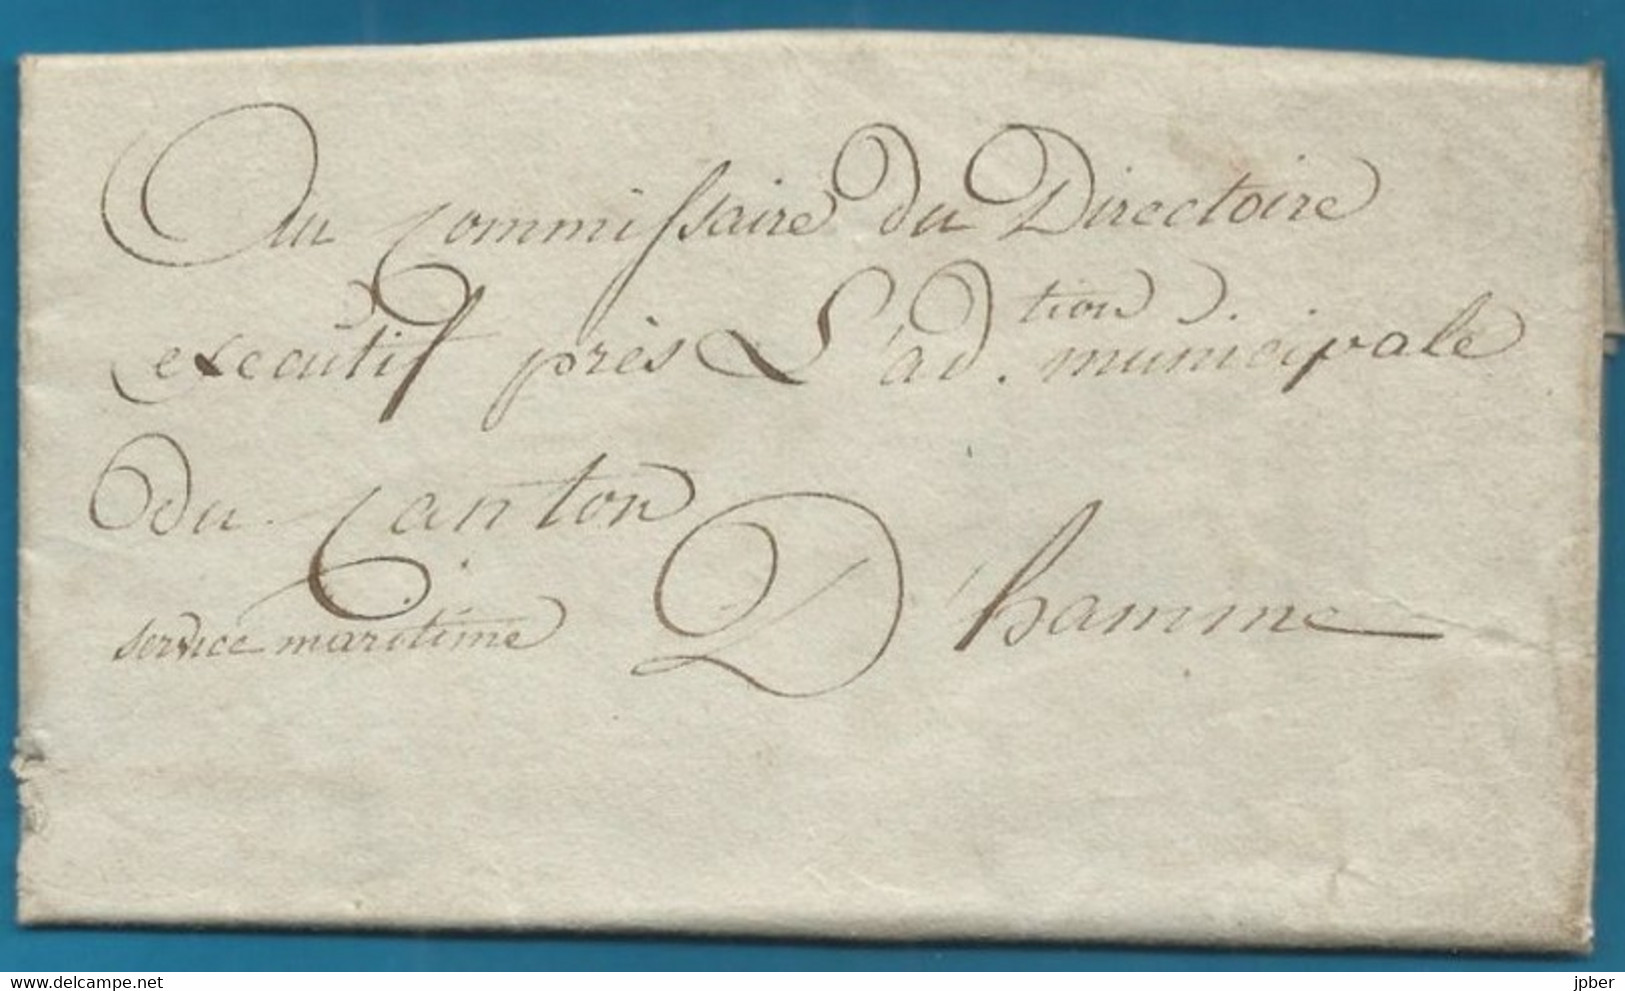 Au Commissaire du Directoire
executif près L'ad.tion municipale
du Canton
D'hamme
service maritime
www.delcampe.net
jpber